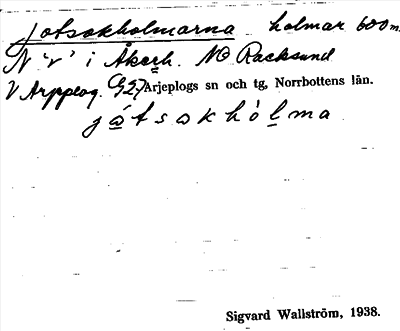 Jotsokholmarna holmar 600 m
N "r" i Åkerh. NO Racksund
V Arpplog. G27 Arjeplogs sn och tg, Norrbottens län.
jåtsokhòlma
Sigvard Wallström, 1938.